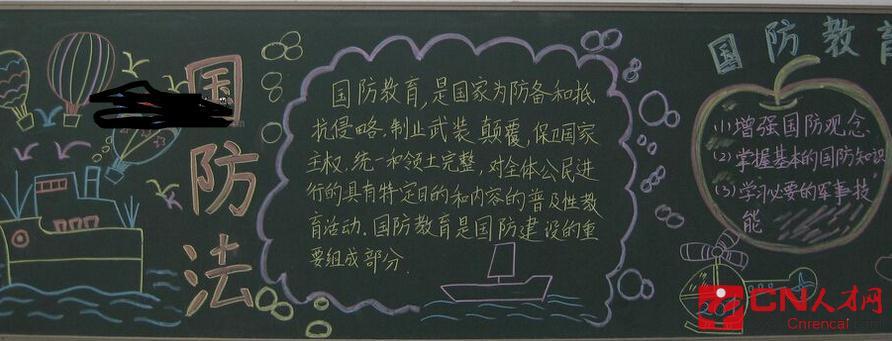 国防法
国防教育,是国家为防备和抵
抗侵略,制止武装颠覆,保卫国家
主权、统一和领土完整,对全体公民进
行的具有特定目的和内容的普及性教
育活动.国防教育是国防建设的重
要组成部分.
国防教育
(1)增强国防观念
(2)掌握基本的国防知识
(3)学习必要的军事技
能
CN人才网
Cnrencai.com